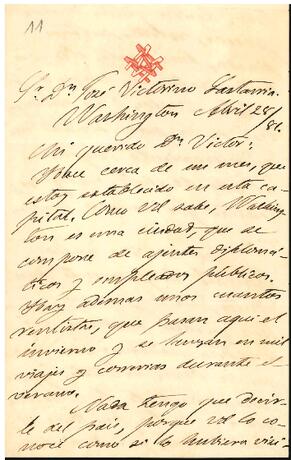 11
Sr. Dn. José Victorino Lastarria
Washington Abril 28/81.
Mi querido Dn. Victor:
Hace cerca de un mes, que
estoy establecido en esta ca-
pital. Como Vd. sabe, Washing-
ton es una ciudad, que se
compone de ajentes diplomá-
ticos y empleados públicos.
Hay ademas unos cuantos
rentistas, que pasan aquí el
invierno y se lanzan en mil
viajes y correrias durante el
verano.
Nada tengo que decir-
le del pais, porque Vd. lo co-
noce como si lo hubiera visi-